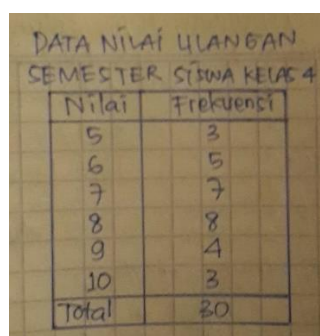 DATA NILAI ULANGAN
SEMESTER SISWA KELAS 4
Nilai Frekuensi
5 3
6 5
7 7
8 8
9 4
10 3
Total 30